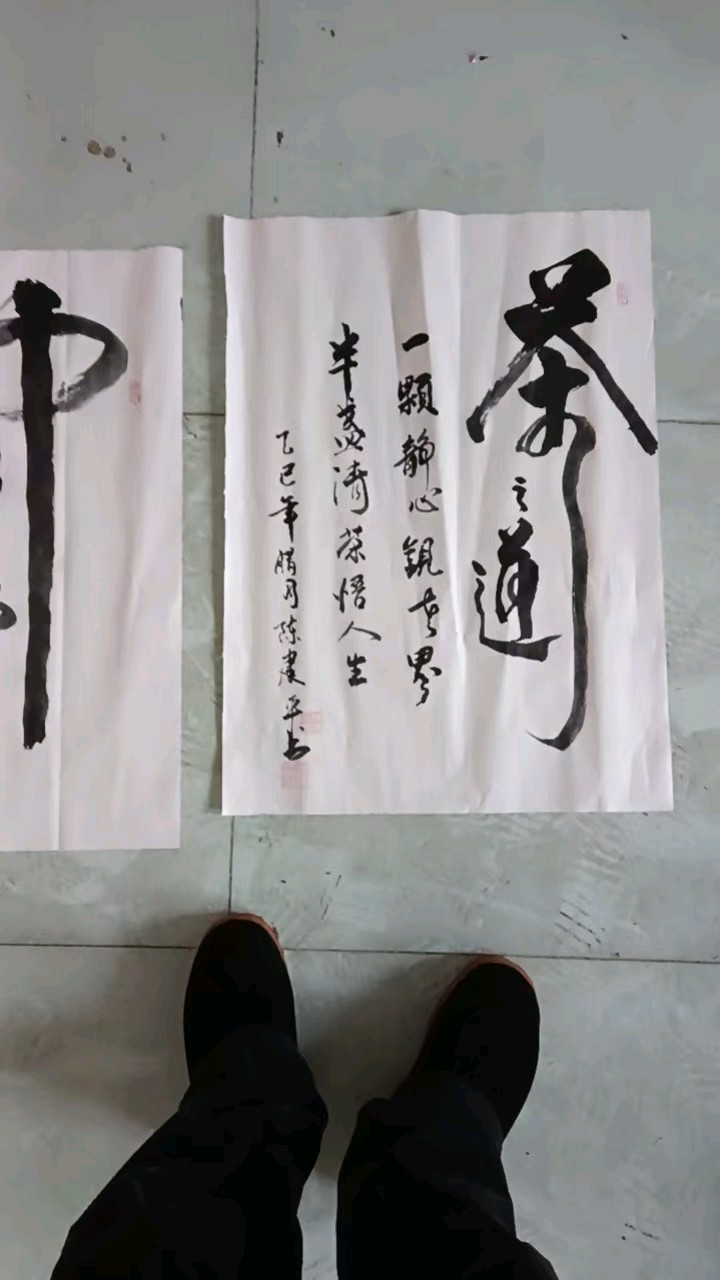 茶之道
一颗静心观世界
半盏清茶悟人生
乙巳年腊月陈建平书